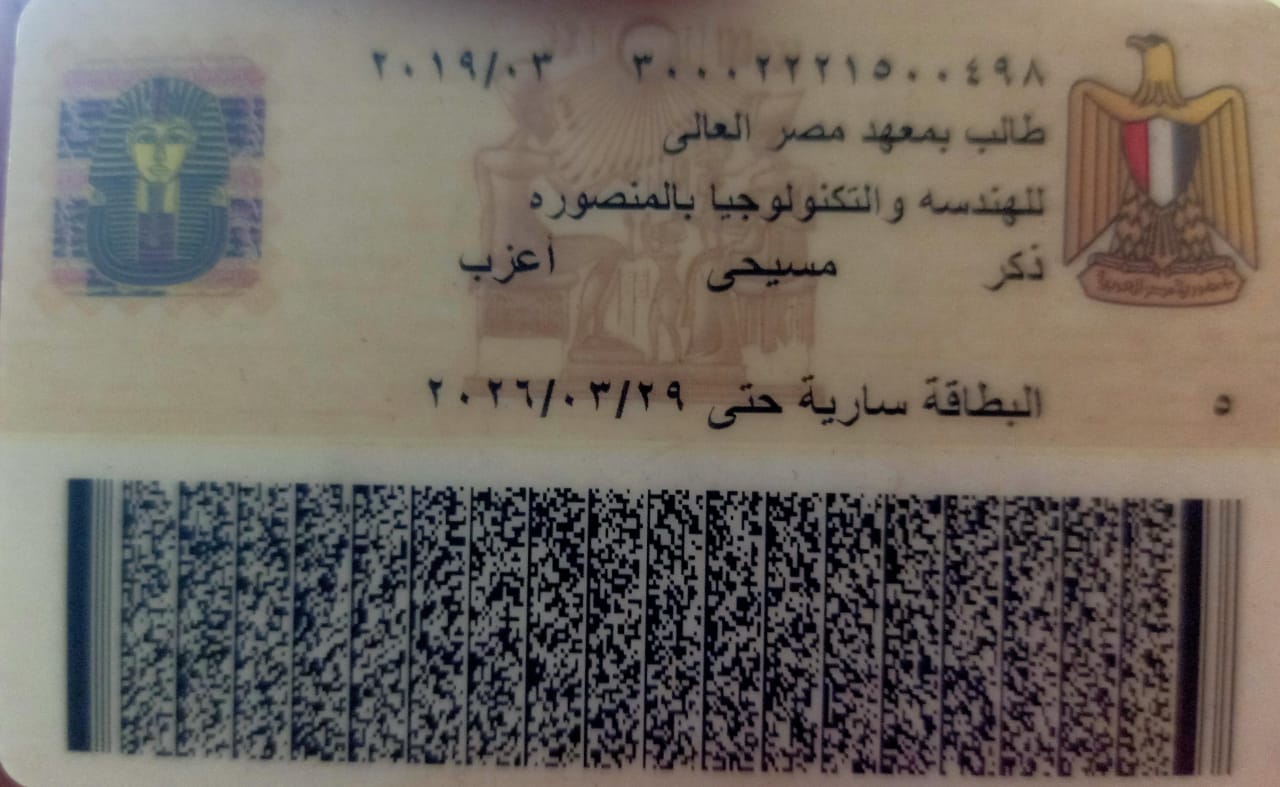 ٣٠٠٠٢٢٢١٥٠٠٤٩٨ ٢٠١٩/٠٣
طالب بمعهد مصر العالى
للهندسه والتكنولوجيا بالمنصوره
ذكر مسيحى أعزب
البطاقة سارية حتى ٢٠٢٦/٠٣/٢٩
٥
جمهورية مصر العربية